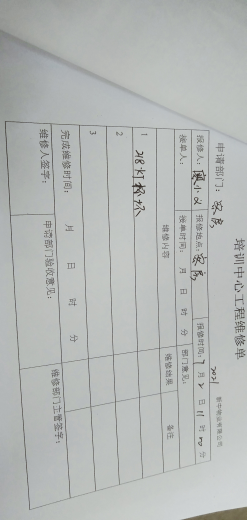 培训中心工程维修单
2021
申请部门：客房
报修人： 报修地点：客房 报修时间：7月2日11时00分
接单人： 接单时间： 月 日 时 分 部门意见：
维修内容 维修结果 备注
1
2
3
完成维修时间： 月 日 时 分
维修人签字： 申请部门验收意见： 维修部门主管签字：